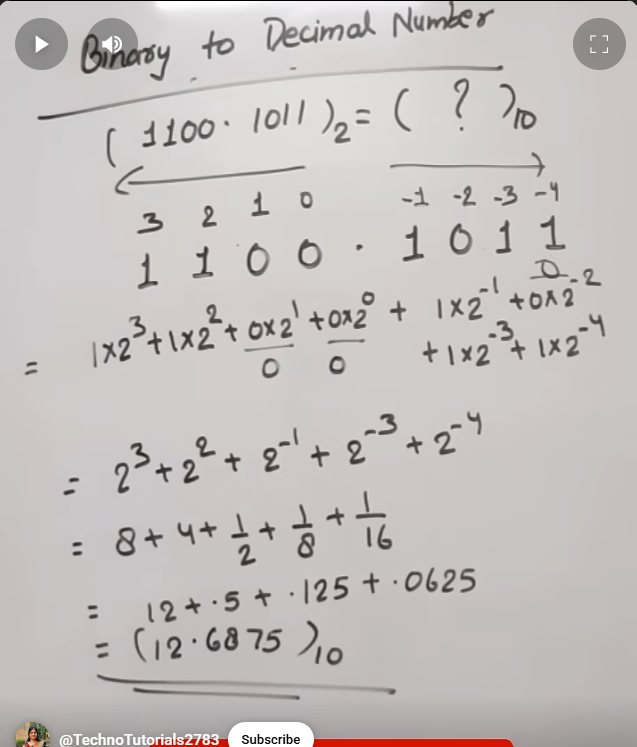 Binary to Decimal Number
( 1100.1011 )₂ = ( ? )₁₀
3 2 1 0 -1 -2 -3 -4
1 1 0 0 . 1 0 1 1
= 1×2³+1×2²+0×2¹+0×2⁰ + 1×2⁻¹+0×2⁻²
0 0 0
+1×2⁻³+1×2⁻⁴
= 2³+2²+2⁻¹+2⁻³+2⁻⁴
= 8+4+1/2+1/8+1/16
= 12+.5+.125+.0625
= (12.6875)₁₀
@TechnoTutorials2783 Subscribe